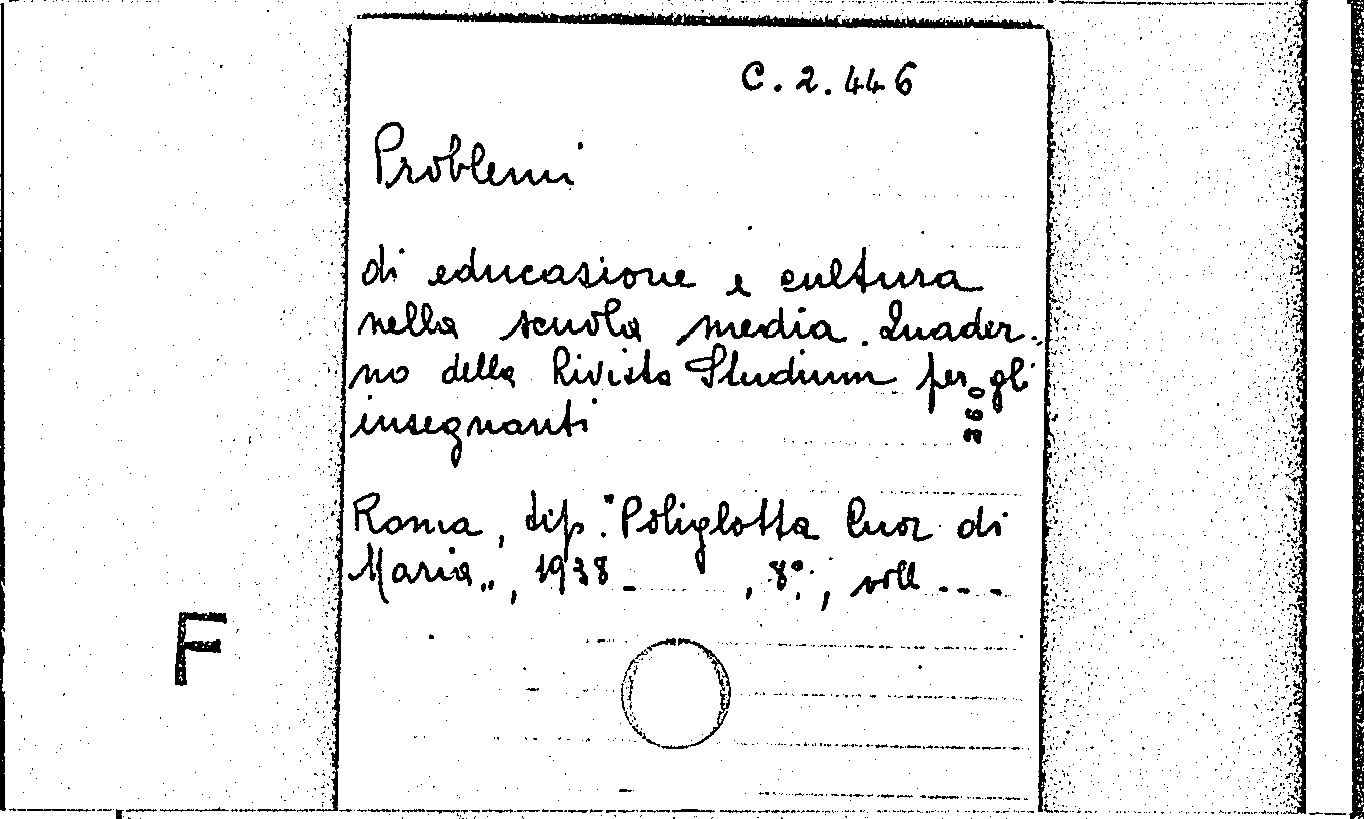 C.2.446
Problemi
di educazione e cultura
nella scuola media. Quader-
no della Rivista Studium per gli
insegnanti
260
Roma, tip. "Poliglotta Cuor di
Maria", 1938- , 8°, voll. ---
F